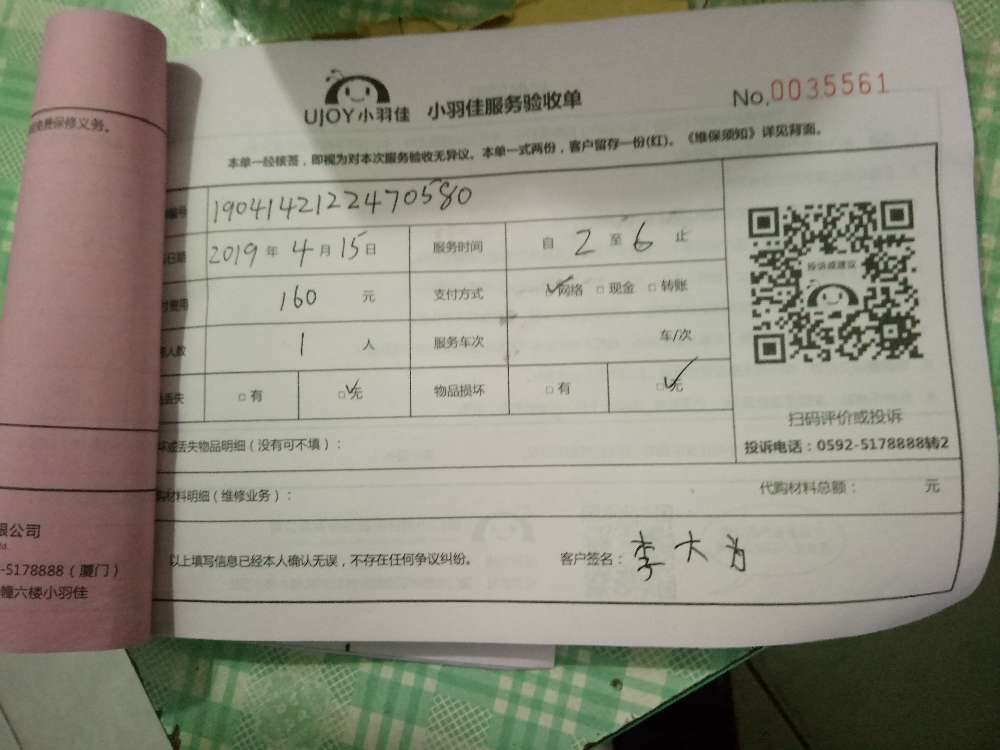 UJOY小羽佳 小羽佳服务验收单
No.0035561
本单一经核签，即视为对本次服务验收无异议。本单一式两份，客户留存一份(红)。《维保须知》详见背面。
编号 1904142122470580
日期 2019年4月15日 服务时间 自2至6止
费用 160元 支付方式 ☑网络 □现金 □转账
人数 1人 服务车次 车/次
丢失 □有 ☑无 物品损坏 □有 ☑无
坏或丢失物品明细（没有可不填）：
购材料明细（维修业务）： 代购材料总额： 元
以上填写信息已经本人确认无误，不存在任何争议纠纷。 客户签名：李大为
投诉或建议
扫码评价或投诉
投诉电话：0592-5178888转2
免费保修义务。
限公司
td.
-5178888（厦门）
幢六楼小羽佳